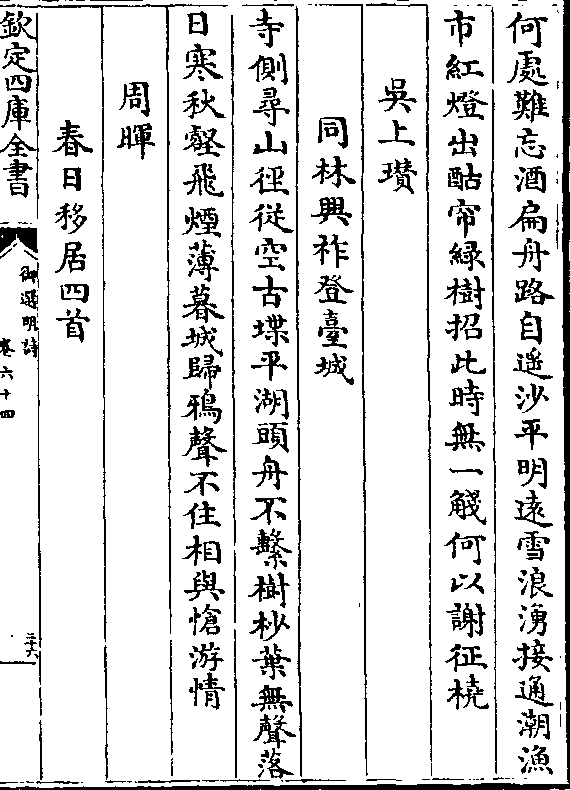 何處難忘酒扁舟路自遥沙平明遠雪浪湧接通潮漁
市紅燈出酤帘緑樹招此時無一醆何以謝征橈
吳上瓚
同林興祚登臺城
寺側尋山徑從空古堞平湖頭舟不繫樹杪葉無聲落
日寒秋壑飛煙薄暮城歸鴉聲不住相與愴游情
周暉
春日移居四首
欽定四庫全書
御選明詩
卷六十四
三十六